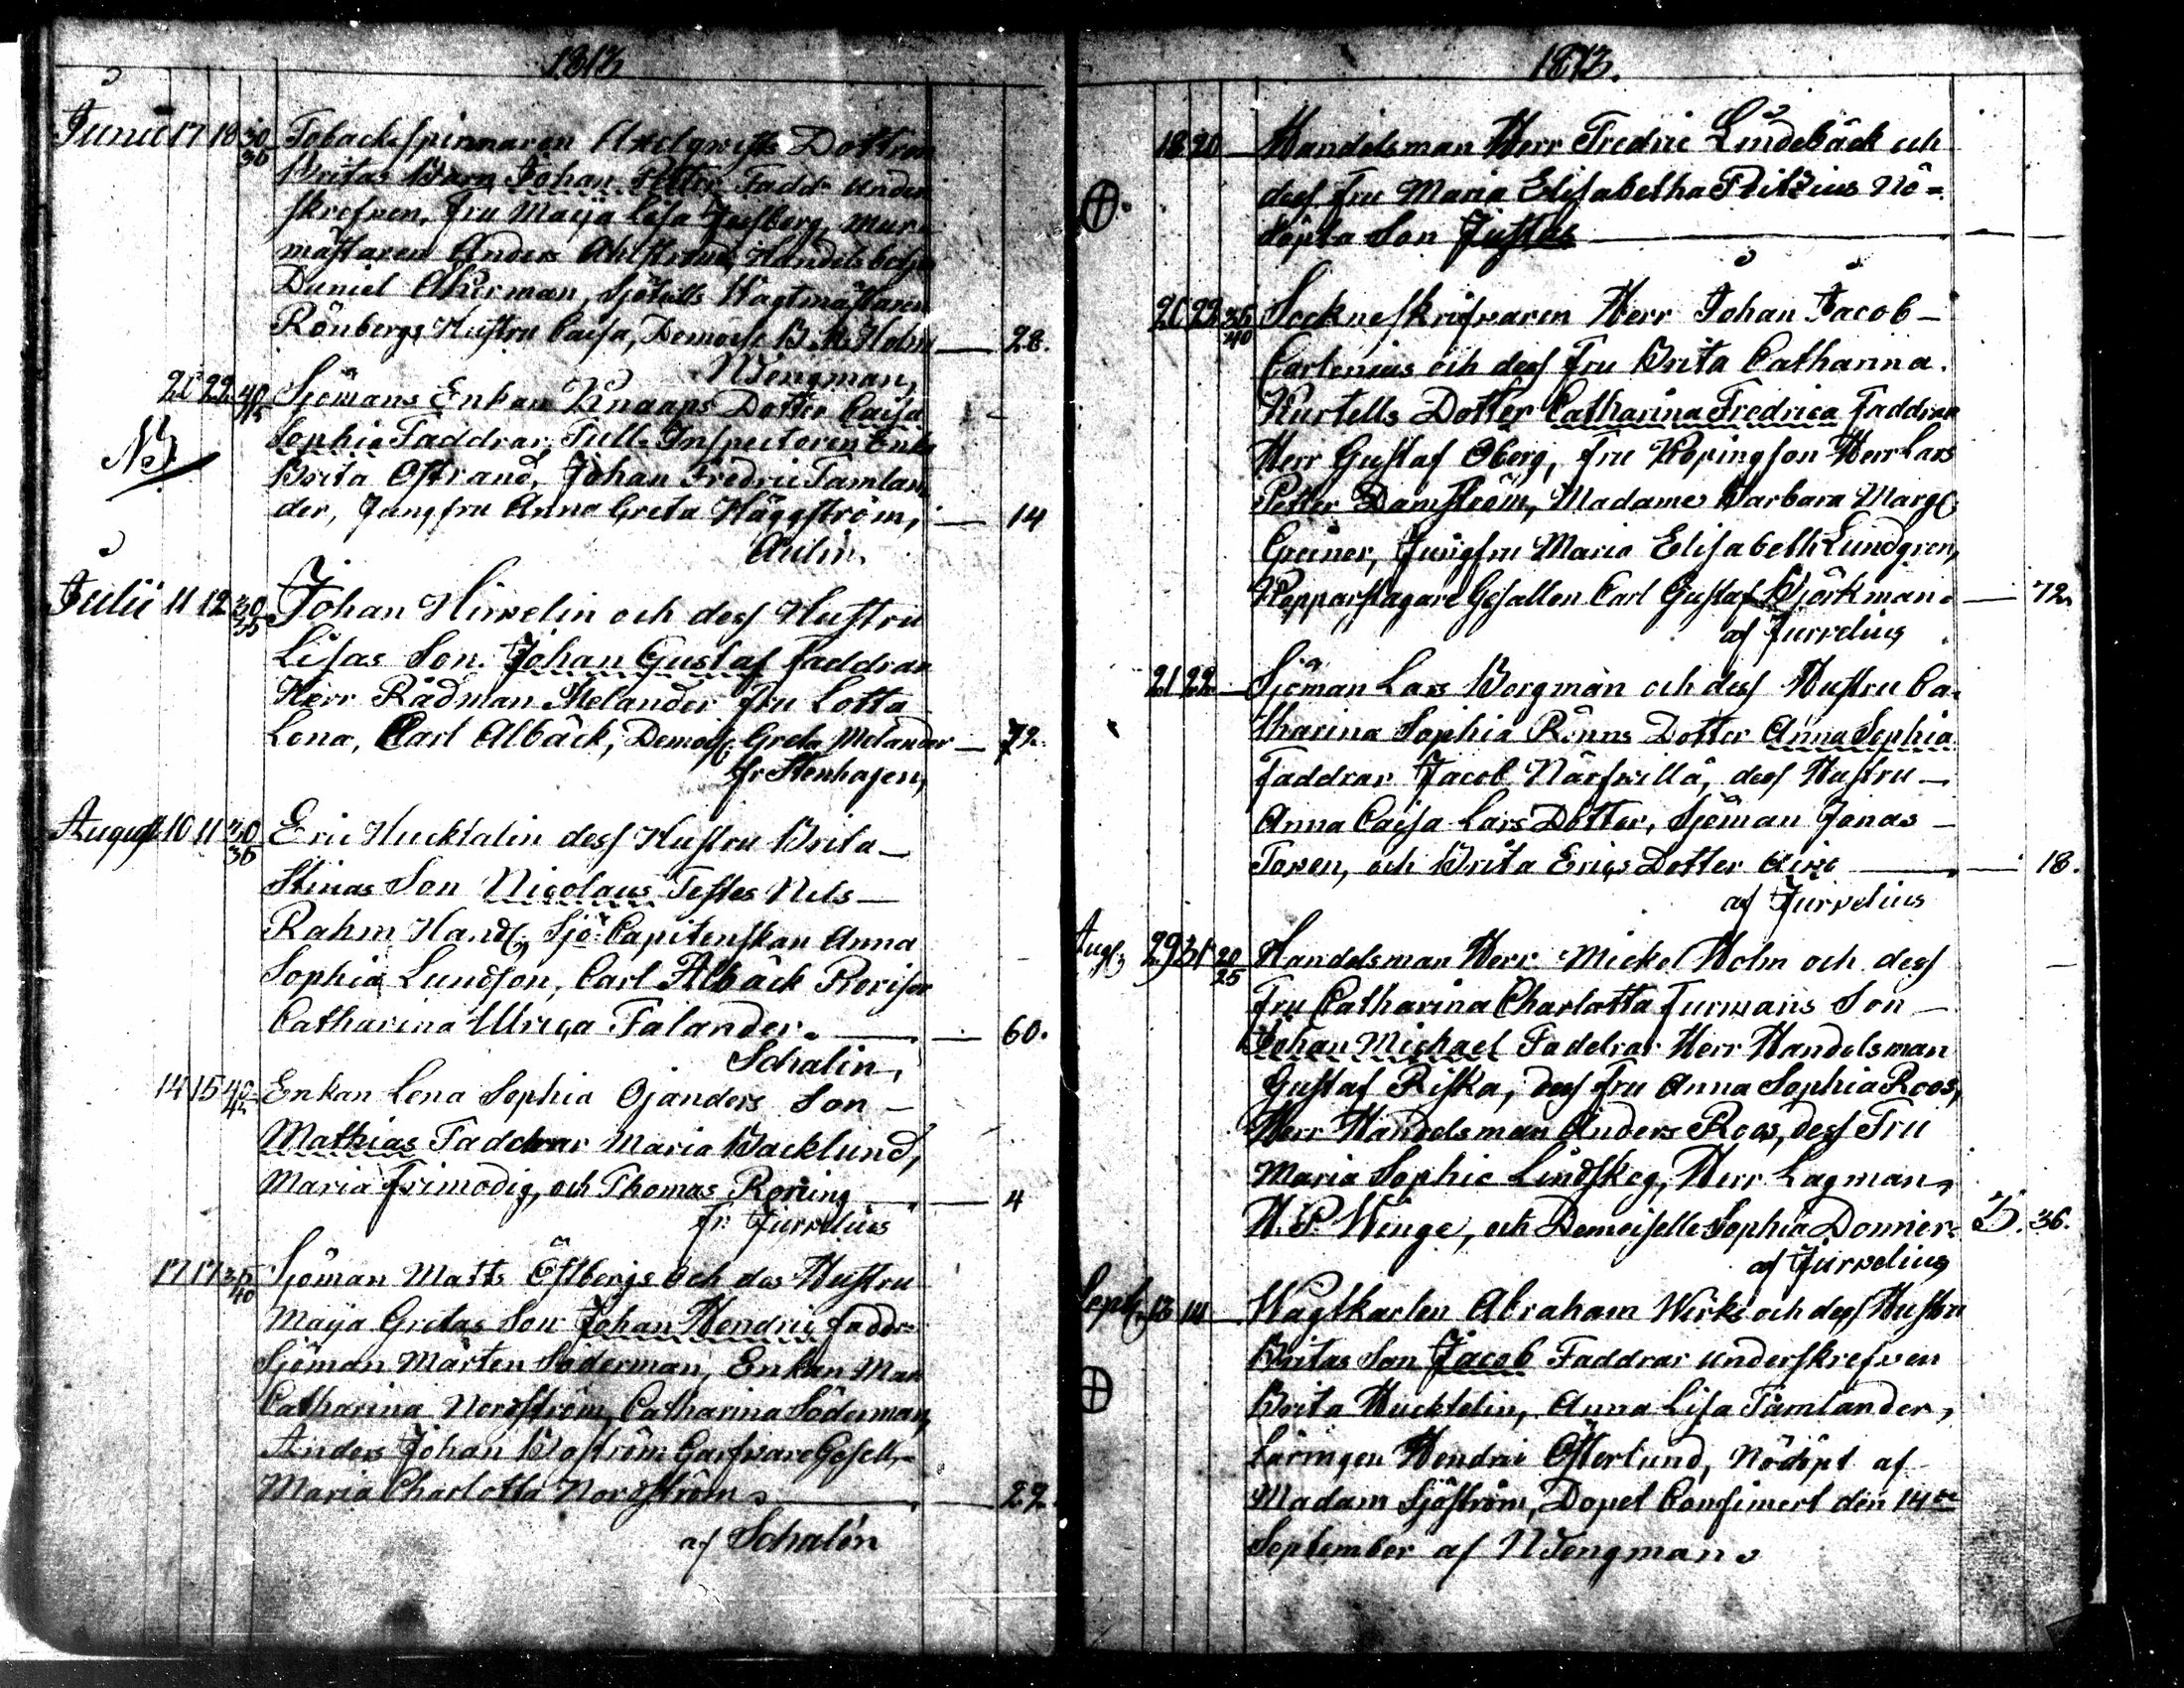 1813
Junii 17 18 30/35 Tobacksspinnaren Axelqwists Dottren
Britas Barn Johan Petter Fadd. under
skrefven, Fru Maija Lisa Jusberg, mur
mästaren Anders Ahlstrand, Handelsbetj
Daniel Åkerman, Sjötulls Wagtmästaren
Rönbergs Hustru Caisa, Demois. B. M. Holm — 28.
Wengman,
21 22 40/45 Sjömans Enkan Knaaps Dotter Caisa
NB Sophia Faddrar, Tull Inspectoren Enka
Brita Ostrand, Johan Fredric Tamlan
der, Jungfru Anna Greta Häggström, — 14
Aulin.
Julii 11 12 30/35 Johan Hirvelin och dess Hustru
Lisas Son. Johan Gustaf Faddrar
Herr Rådman Melander Fru Lotta
Lona, Carl Albäck, Demois. Greta Melander — 72.
fr Stenhagen,
August 10 11 30/35 Eric Hucktalin dess Hustru Brita —
Stinas Son Nicolaus Testes Nils —
Rahm Handl. Sjö Capitenskan Anna
Sophia Lundson, Carl Albäck Provisor
Catharina Ulrica Falander. — 60.
Schalin,
14 15 40/42 Enkan Lena Sophia Ojanders Son —
Mathias Faddrar Maria Backlund,
Maria Frimodig, och Thomas Roning — 4
fr. Jurvelius
17 17 35/40 Sjöman Matts Östbergs och des Hustru
Maija Gretas Son Johan Hendric Faddr
Sjöman Mårten Söderman, Enkan Mar
Catharina Nordström, Catharina Söderman,
Anders Johan Boström Garfvare Gesell,
Maria Charlotta Nordström — 22.
af Schalén
1813.
18 20 — Handelsman Herr Fredric Lindebäck och
dess Fru Maria Elisabetha Flitzius Nö=
döpta Son Justus —
20 22 35/40 Sockneskrifvaren Herr Johan Jacob —
Carlenius och dess Fru Brita Catharina
Kurtells Dotter Catharina Fredrica Faddrar
Herr Gustaf Oberg, Fru Kopingson Herr Lars
Petter Damström, Madame Barbara Marg.
Greiner, Jungfru Maria Elisabeth Lundgren,
Kopparslagare Gesällen Carl Gustaf Björkman. — 72.
af Jurvelius
21 22 — Sjöman Lars Borgman och dess Hustru Ca
tharina Sophia Rönns Dotter Anna Sophia
Faddrar Jacob Närfwillä, dess Hustru —
Anna Caisa Lars Dotter, Sjöman Jonas —
Toven, och Brita Erics Dotter Airo — 18.
af Jurvelius
Aug. 29 31 20/25 Handelsman Herr Mickel Holm och dess
Fru Catharina Charlotta Furmans Son —
Johan Michael Faddrar Herr Handelsman
Gustaf Riska, dess Fru Anna Sophia Roos,
Herr Handelsman Anders Roos, dess Fru
Maria Sophie Lindskog, Herr Lagman,
H. P. Winge, och Demoiselle Sophia Donner 36.
af Jurvelius
Sept. 13 14 — Wagtkarlen Abraham Wirki och dess Hustru
Britas Son Jacob Faddrar underskrefven
Brita Hucktelin, Anna Lisa Tamlander,
Läringen Hendric Österlund, Nödöpt af
Madam Sjöström, Dopet Confirmert den 14de
September af Wengman.